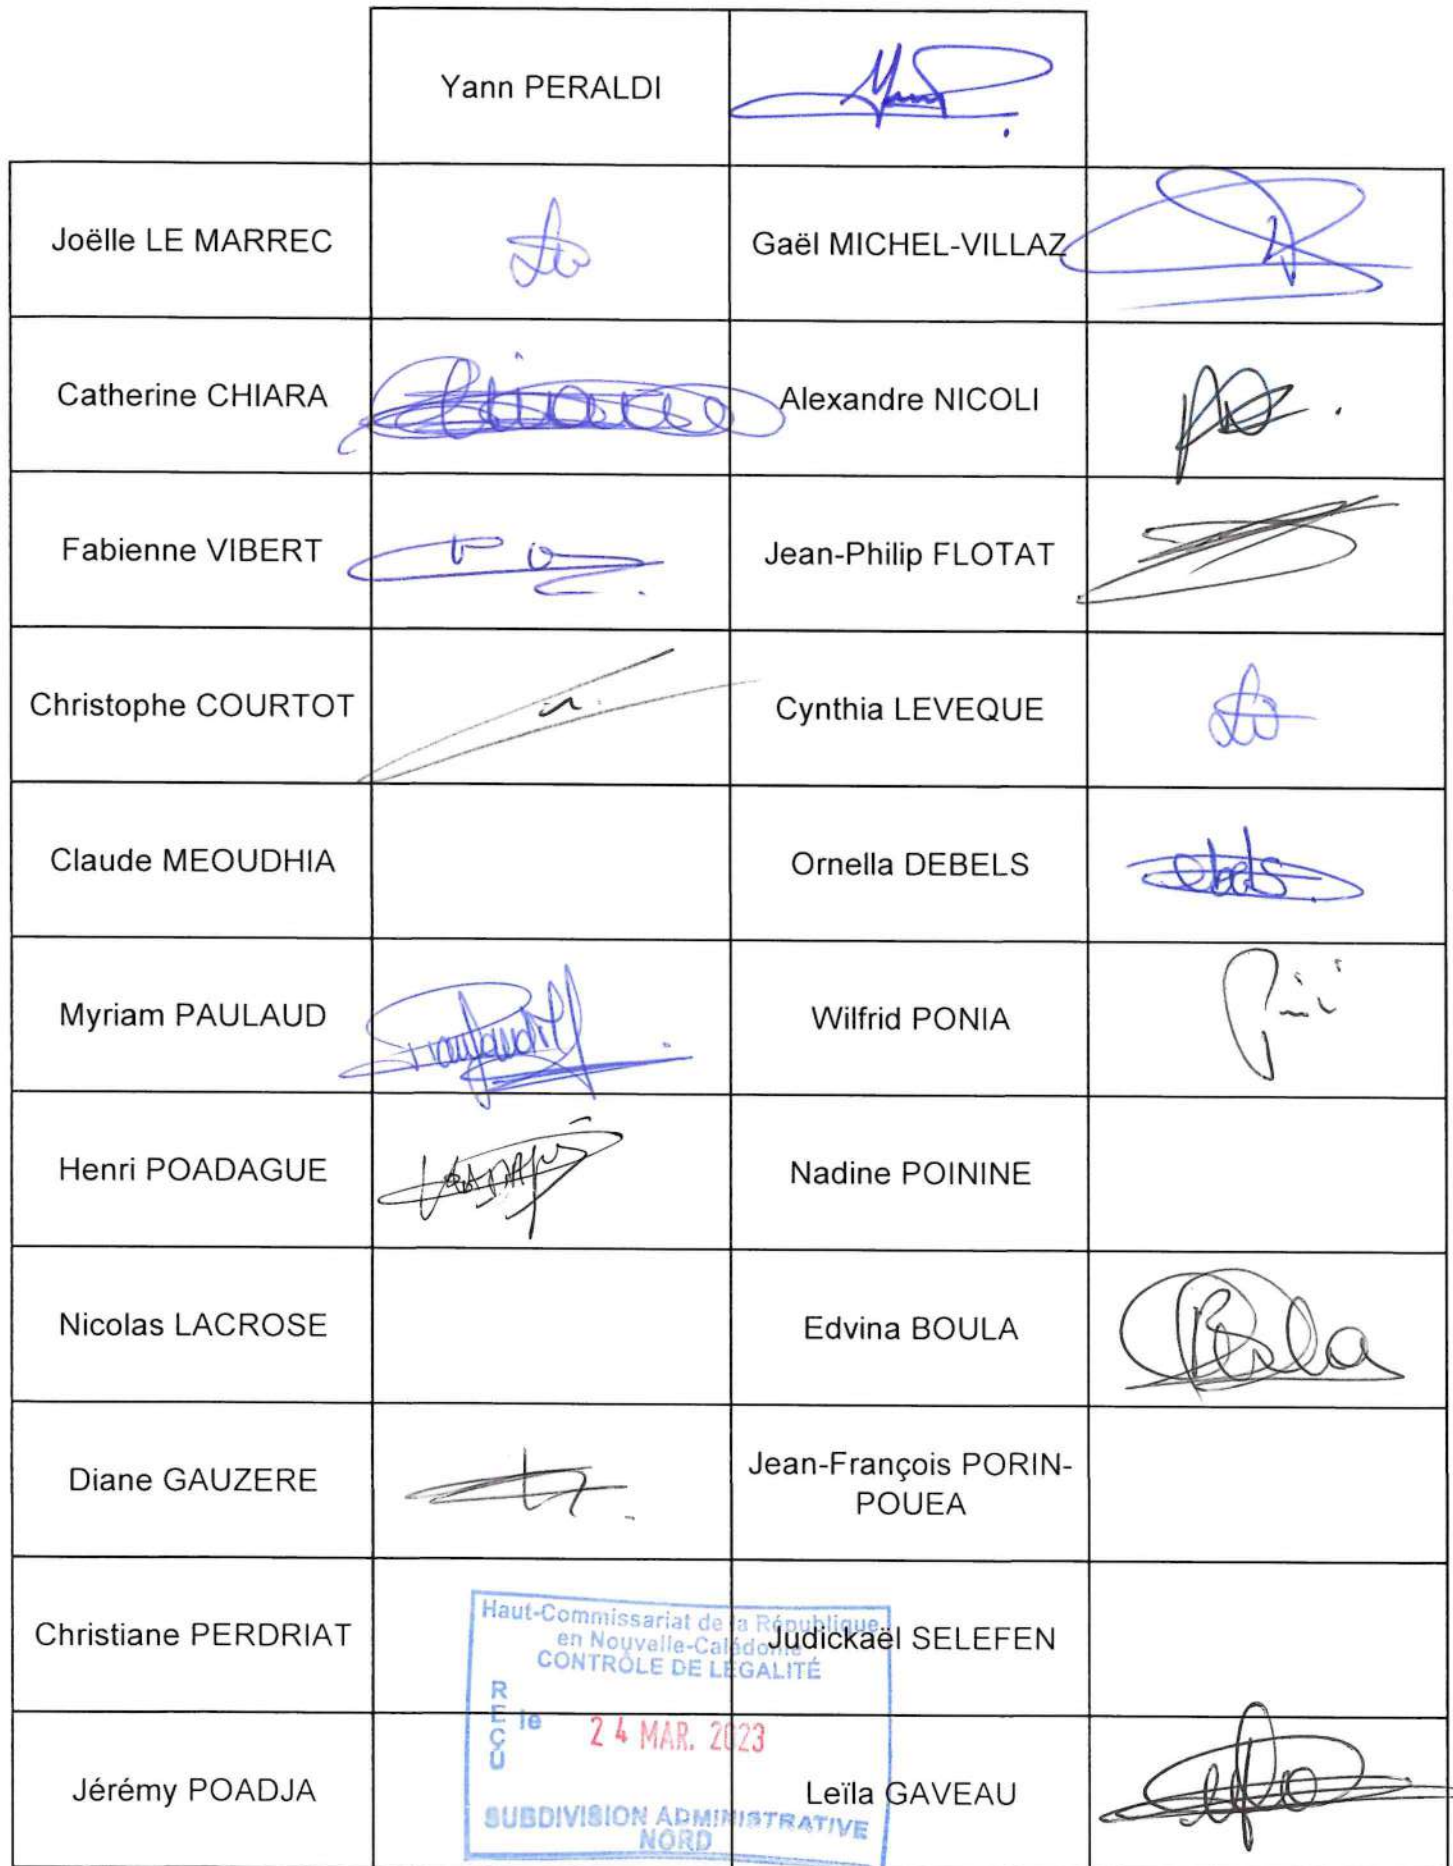 Yann PERALDI
Joëlle LE MARREC
Gaël MICHEL-VILLAZ
Catherine CHIARA
Alexandre NICOLI
Fabienne VIBERT
Jean-Philip FLOTAT
Christophe COURTOT
Cynthia LEVEQUE
Claude MEOUDHIA
Ornella DEBELS
Myriam PAULAUD
Wilfrid PONIA
Henri POADAGUE
Nadine POININE
Nicolas LACROSE
Edvina BOULA
Diane GAUZERE
Jean-François PORIN-
POUEA
Christiane PERDRIAT
Judickaël SELEFEN
Haut-Commissariat de la République
en Nouvelle-Calédonie
CONTRÔLE DE LÉGALITÉ
REÇU
le 24 MAR. 2023
SUBDIVISION ADMINISTRATIVE
NORD
Jérémy POADJA
Leïla GAVEAU